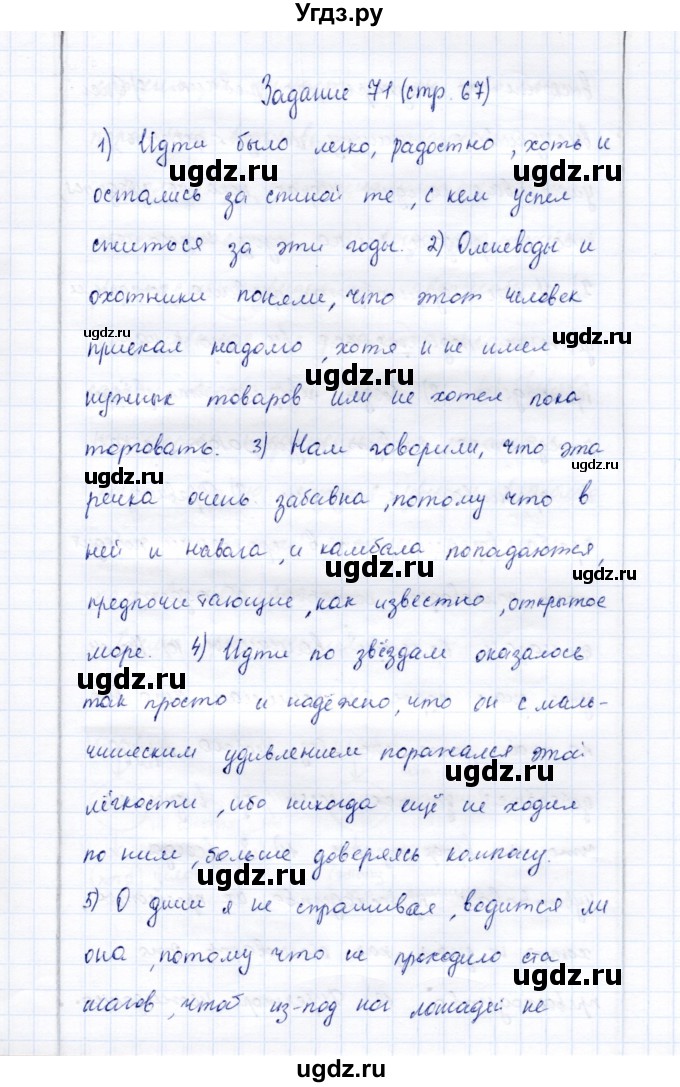 Угдз.ру
Задание 71 (стр. 67)
1) Идти было легко, радостно, хоть и
ugdz.ru
остались за спиной те, с кем успел
ugdz.ru
сжиться за эти годы. 2) Оленеводы и
охотники поняли, что этот человек
ugdz.ru
приехал надолго, хотя и не имел
ugdz.ru
ugdz.ru
нужных товаров или не хотел пока
торговать. 3) Нам говорили, что эта
ugdz.ru
ugdz.ru
речка очень забавна, потому что в
ugdz.ru
ней и навага, и камбала попадаются,
ugdz.ru
ugdz.ru
предпочитающие, как известно, открытое
море. 4) Идти по звёздам оказалось
ugdz.ru
так просто и надёжно, что он с маль-
чишеским удивлением поражался этой
ugdz.ru
лёгкости, ибо никогда ещё не ходил
по ним, больше доверяясь компасу.
ugdz.ru
5) О дичи я не спрашивал, водится ли
ugdz.ru
она, потому что не проходило ста
ugdz.ru
шагов, чтоб из-под ног лошадей не
ugdz.ru